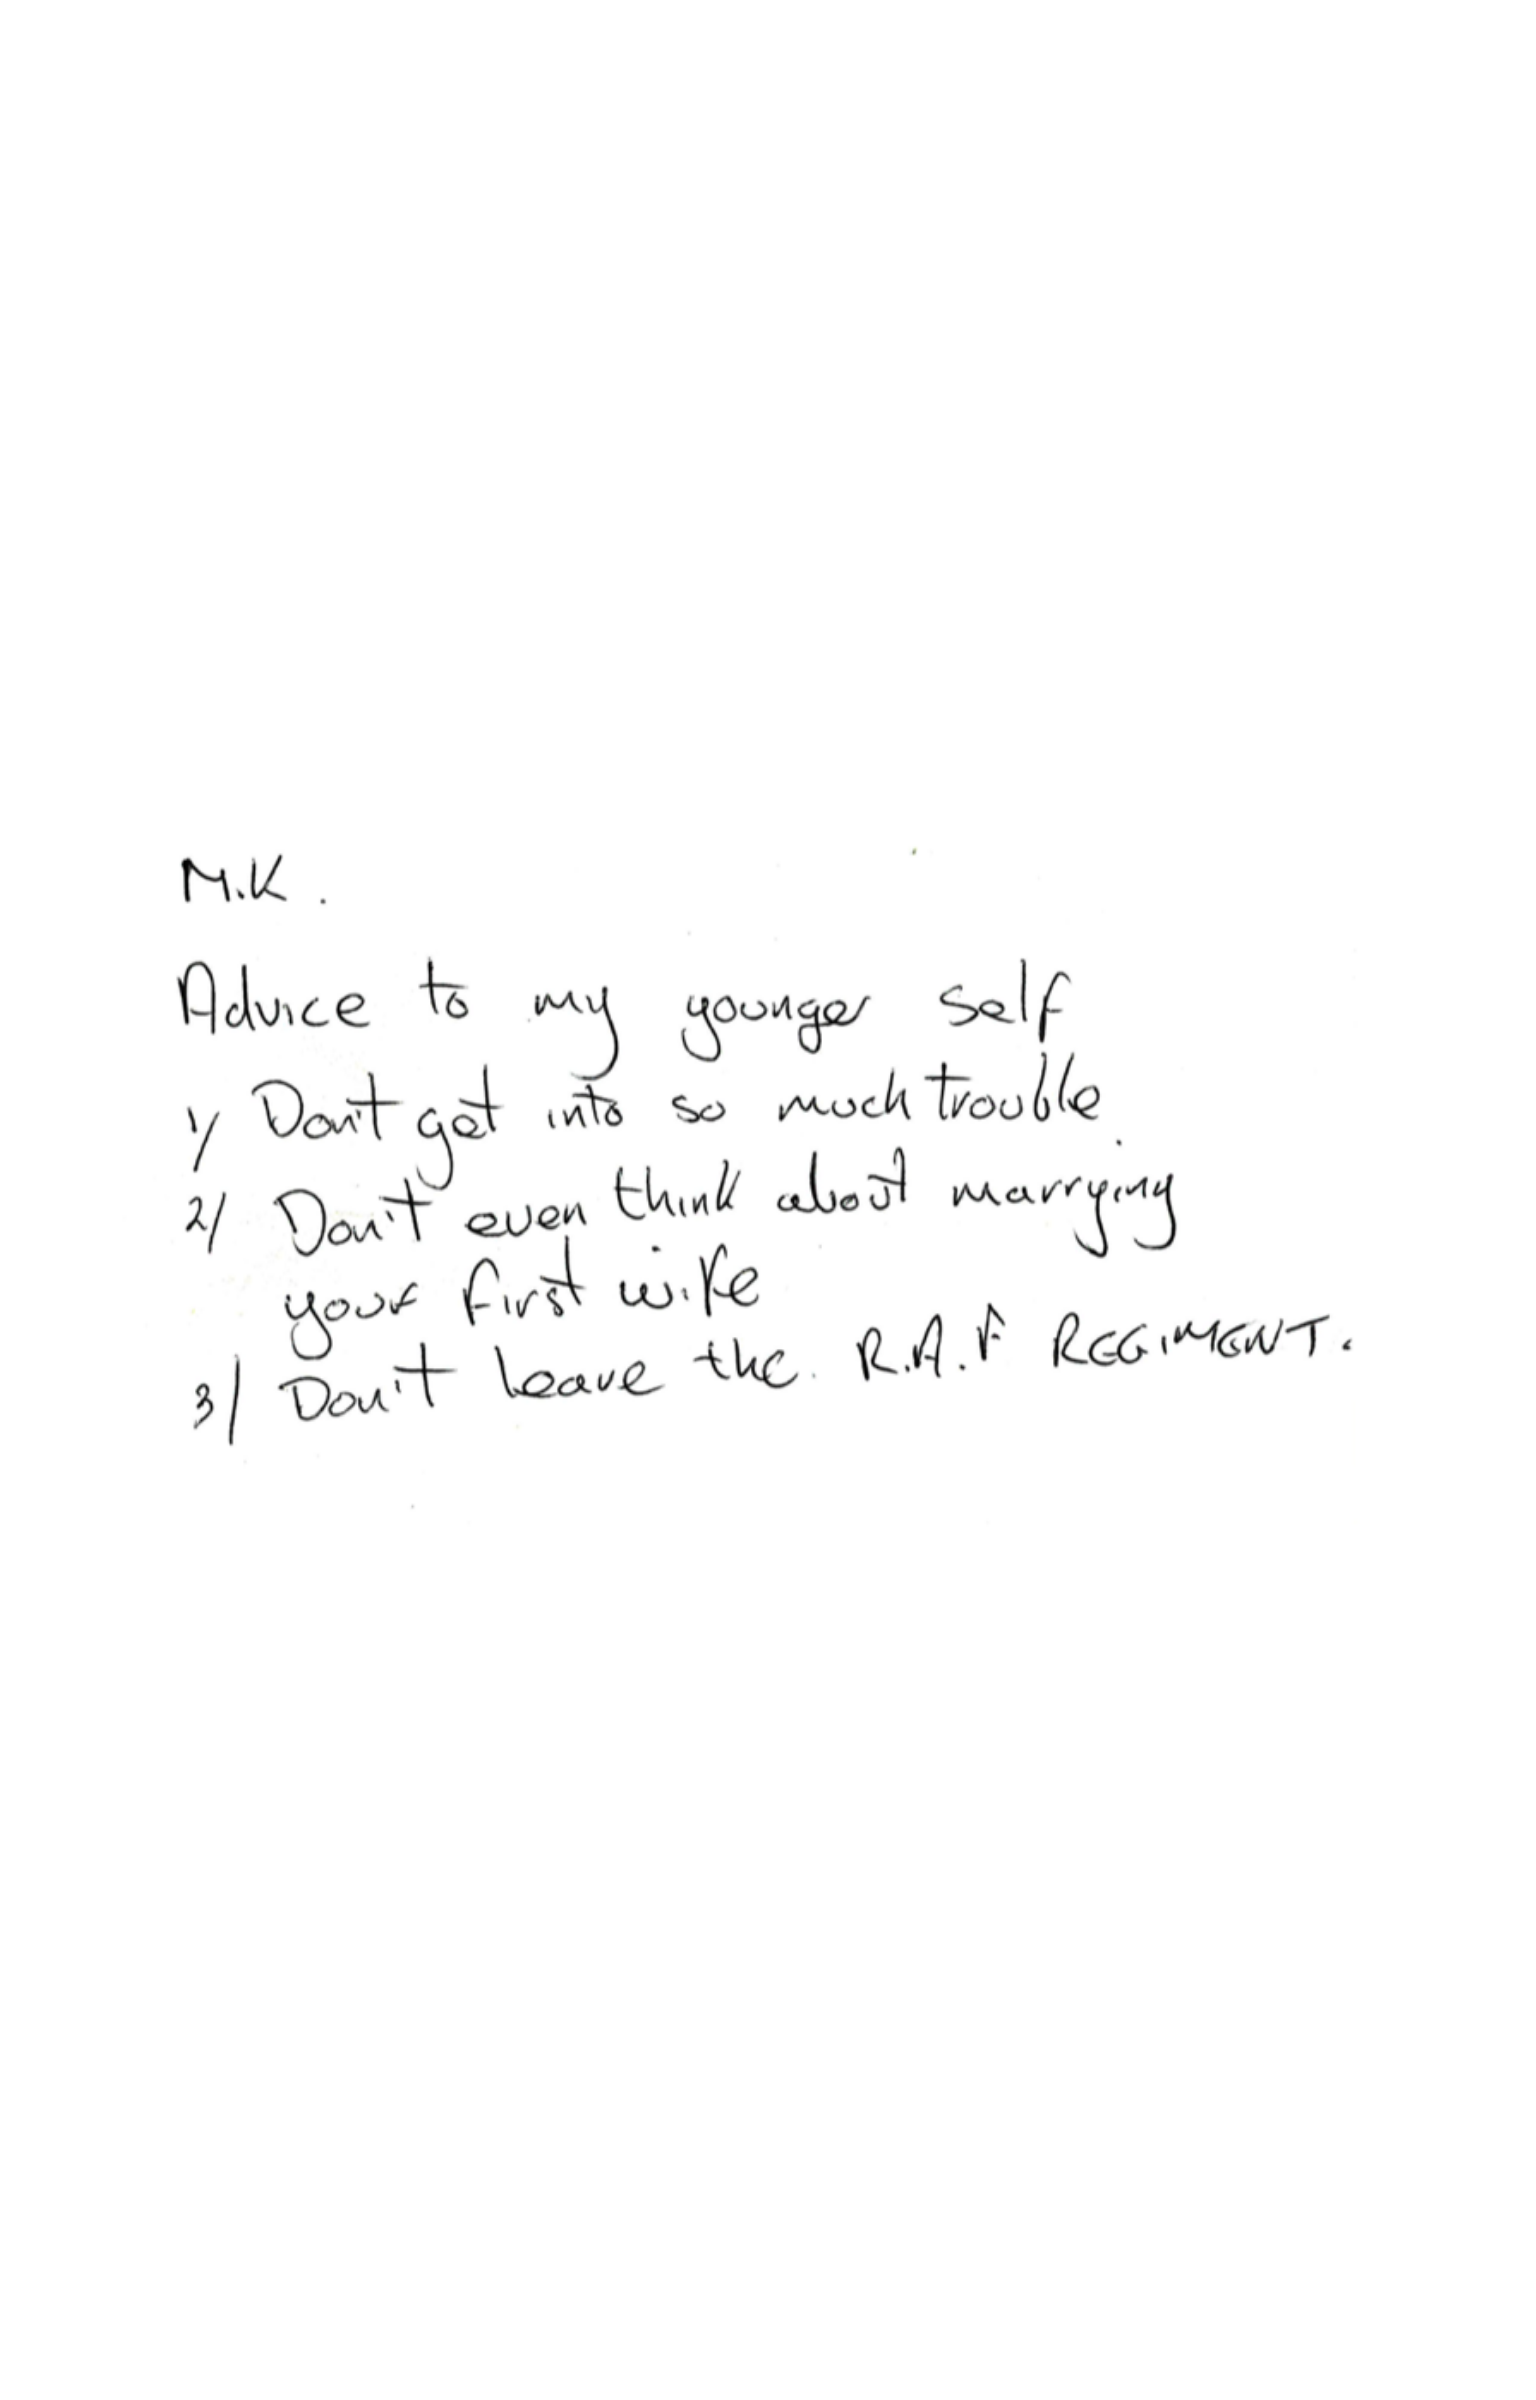 M.K.
Advice to my younger self
1/ Don't get into so much trouble.
2/ Don't even think about marrying
your first wife
3/ Don't leave the R.A.F REGIMENT.